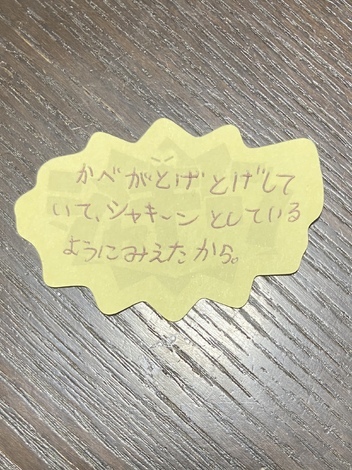 かべがとげとげして
いて、シャキーンとしている
ようにみえたから。